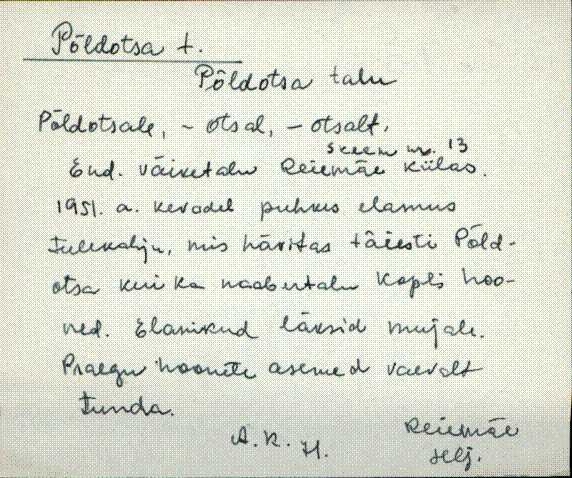 Põldotsa t.
Põldotsa talu
Põldotsale, - otsal, - otsalt.
skeem nr. 13
End. väiketalu Reiemäe külas.
1951. a. kevadel puhkes elamus
tulekahju, mis hävitas täiesti Põld-
otsa kui ka naabertalu Kopli hoo-
ned. Elanikud läksid mujale.
Praegu hoonete asemed vaevalt
tunda.
A. K. H.
Reiemäe
Helj.